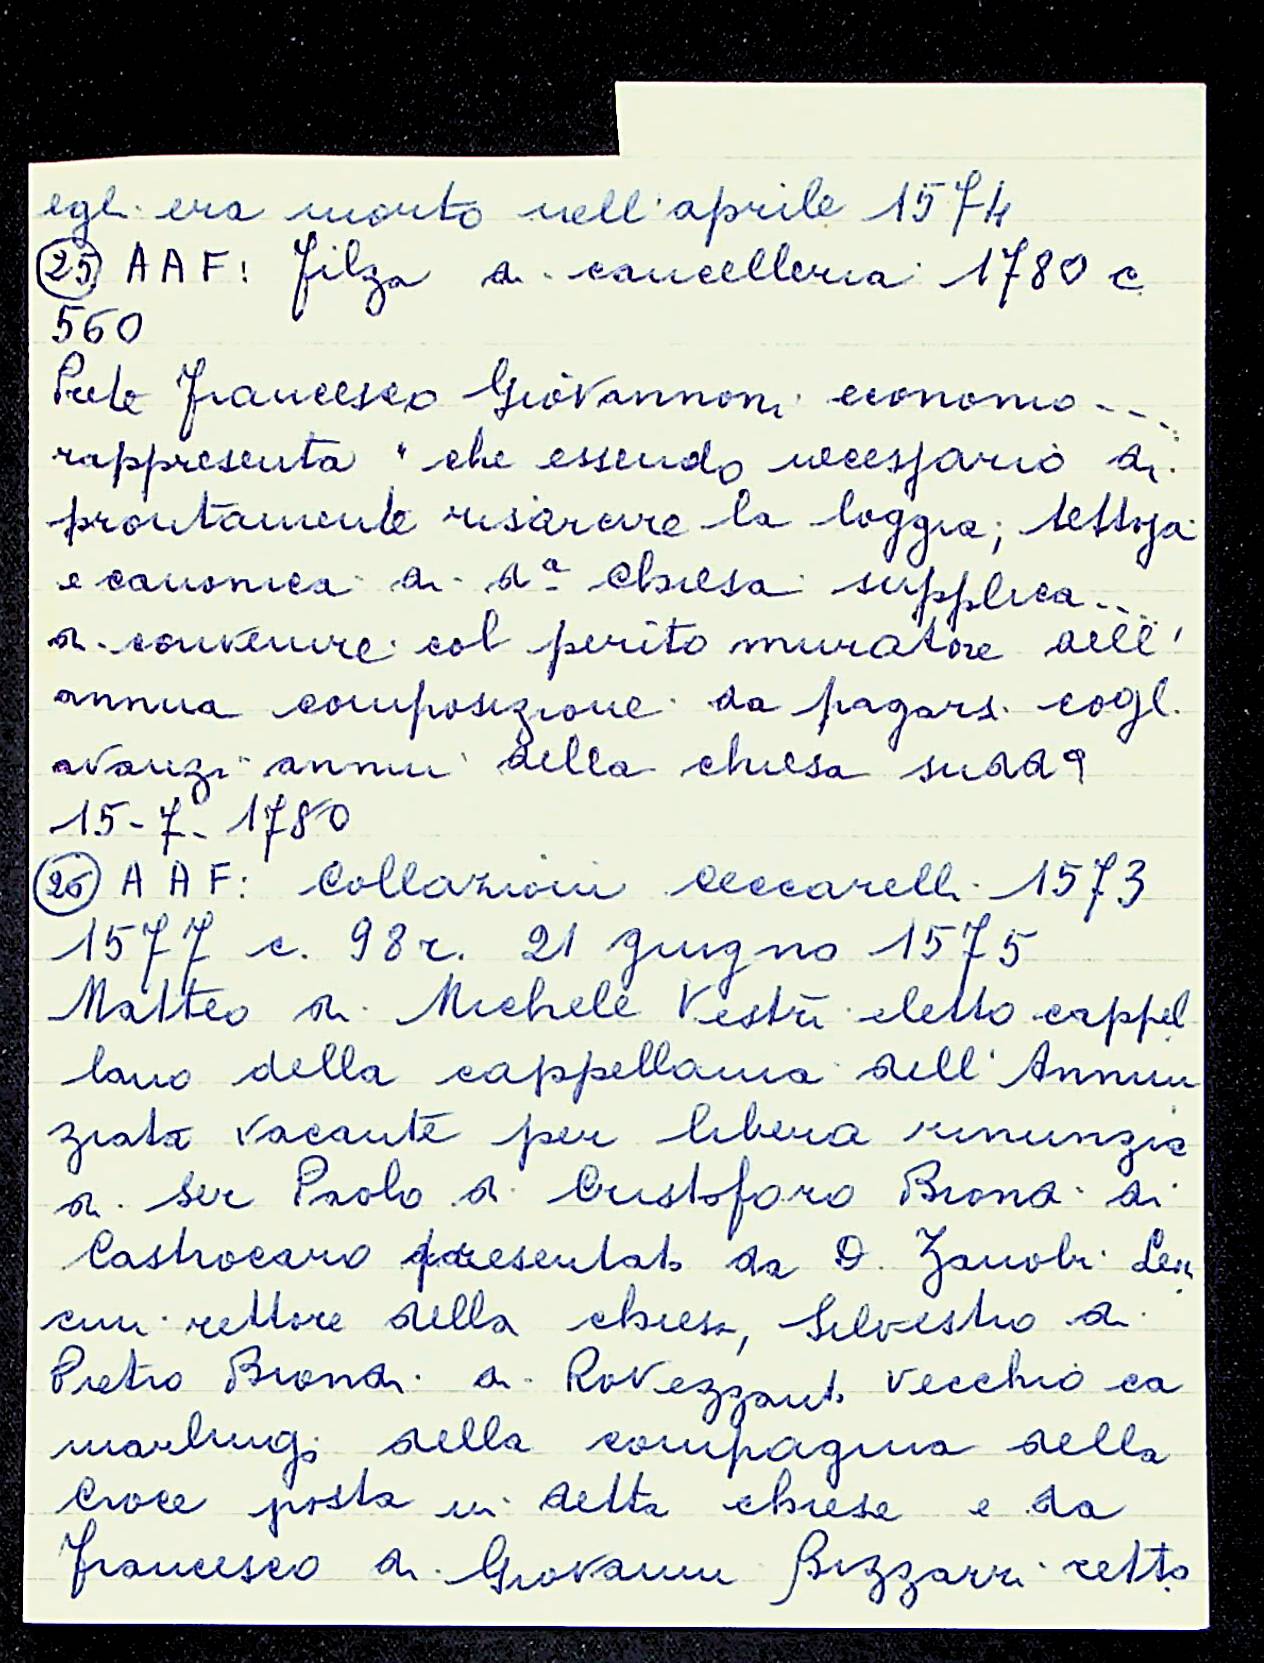 egli era morto nell'aprile 1574
(25) AAF: Filza di cancelleria 1780 c
560
Prete Francesco Giovannoni economo ....
rappresenta "che essendo necessario di
prontamente risarcire la loggia, tettoja
e canonica di da chiesa supplica....
di convenire col perito muratore dell'
annua composizione da pagarsi cogli
avanzi annui della chiesa sudda
15-7-1780
(26) AAF: Collazioni Ceccarelli 1573
1577 c. 98r. 21 giugno 1575
Matteo di Michele Vestri eletto cappel
lano della cappellania dell'Annun
ziata vacante per libera rinunzia
di Ser Paolo di Cristoforo Biondi di
Castrocaro presentato da D. Zanobi
rettore della chiesa, Silvestro di
Pietro Biondi di Rovezzano vecchio ca
marlingo della compagnia della
Croce posta in detta chiesa e da
Francesco di Giovanni Bizzarri retto